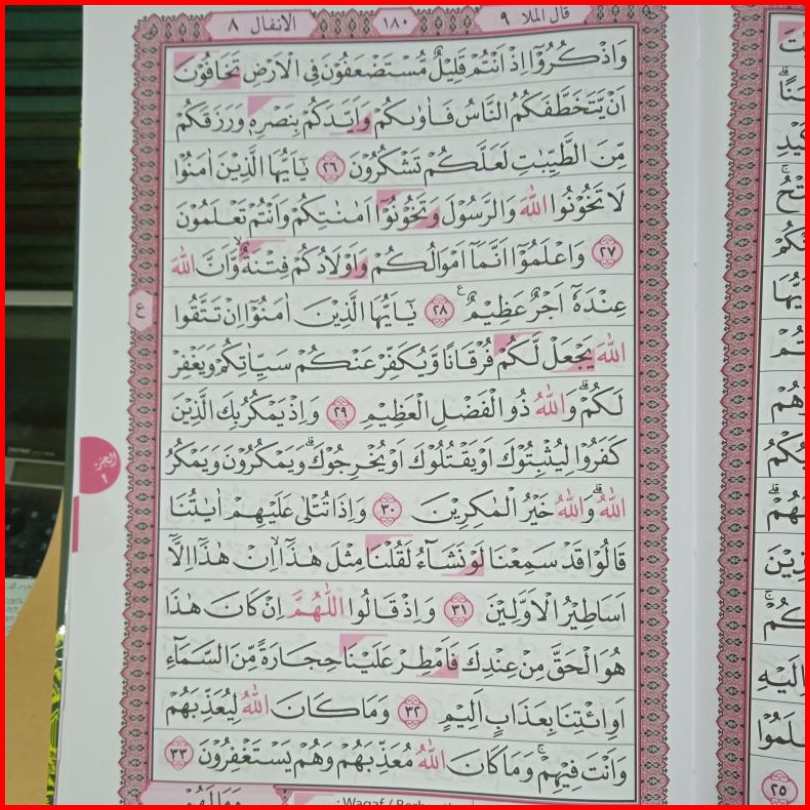 قال الملا ٩
١٨٠
الانفال ٨
وَاذْكُرُوْٓا اِذْ اَنْتُمْ قَلِيْلٌ مُّسْتَضْعَفُوْنَ فِى الْاَرْضِ تَخَافُوْنَ
اَنْ يَّتَخَطَّفَكُمُ النَّاسُ فَاٰوٰىكُمْ وَاَيَّدَكُمْ بِنَصْرِهٖ وَرَزَقَكُمْ
مِّنَ الطَّيِّبٰتِ لَعَلَّكُمْ تَشْكُرُوْنَ ٢٦ يٰٓاَيُّهَا الَّذِيْنَ اٰمَنُوْا
لَا تَخُوْنُوا اللّٰهَ وَالرَّسُوْلَ وَتَخُوْنُوْٓا اَمٰنٰتِكُمْ وَاَنْتُمْ تَعْلَمُوْنَ
٢٧ وَاعْلَمُوْٓا اَنَّمَآ اَمْوَالُكُمْ وَاَوْلَادُكُمْ فِتْنَةٌ ۙوَّاَنَّ اللّٰهَ
عِنْدَهٗٓ اَجْرٌ عَظِيْمٌ ࣖ ٢٨ يٰٓاَيُّهَا الَّذِيْنَ اٰمَنُوْٓا اِنْ تَتَّقُوا
اللّٰهَ يَجْعَلْ لَّكُمْ فُرْقَانًا وَّيُكَفِّرْ عَنْكُمْ سَيِّاٰتِكُمْ وَيَغْفِرْ
لَكُمْۗ وَاللّٰهُ ذُو الْفَضْلِ الْعَظِيْمِ ٢٩ وَاِذْ يَمْكُرُ بِكَ الَّذِيْنَ
كَفَرُوْا لِيُثْبِتُوْكَ اَوْ يَقْتُلُوْكَ اَوْ يُخْرِجُوْكَۗ وَيَمْكُرُوْنَ وَيَمْكُرُ
اللّٰهُ ۗوَاللّٰهُ خَيْرُ الْمٰكِرِيْنَ ٣٠ وَاِذَا تُتْلٰى عَلَيْهِمْ اٰيٰتُنَا
قَالُوْا قَدْ سَمِعْنَا لَوْ نَشَاۤءُ لَقُلْنَا مِثْلَ هٰذَآ ۙاِنْ هٰذَآ اِلَّآ
اَسَاطِيْرُ الْاَوَّلِيْنَ ٣١ وَاِذْ قَالُوا اللّٰهُمَّ اِنْ كَانَ هٰذَا
هُوَ الْحَقَّ مِنْ عِنْدِكَ فَاَمْطِرْ عَلَيْنَا حِجَارَةً مِّنَ السَّمَاۤءِ
اَوِ ائْتِنَا بِعَذَابٍ اَلِيْمٍ ٣٢ وَمَا كَانَ اللّٰهُ لِيُعَذِّبَهُمْ
وَاَنْتَ فِيْهِمْۚ وَمَا كَانَ اللّٰهُ مُعَذِّبَهُمْ وَهُمْ يَسْتَغْفِرُوْنَ ٣٣
وَمَا لَهُمْ
Waqaf /
ع
الجزء